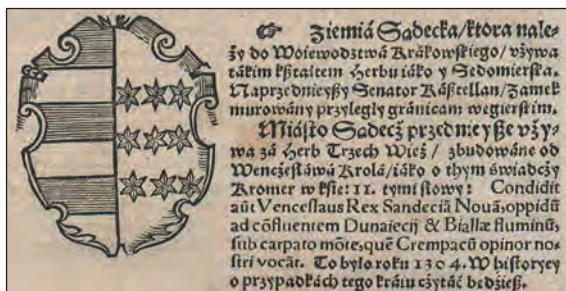 ☞ Ziemiá Sądecka/ ktora nale⸗
ży do Woiewodztwá Krákowſkiego/ vżywa
tákim kßtałtem Herbu iáko y Sedomierſka.
Naprzednieyßy Senator Káßtellan/ Zamek
murowány przyległy gránicam węgierſkim.
Miáſto Sądecż przednieyße vży⸗
wa zá Herb Trzech Wież / zbudowáne od
Wencżeſłáwá Krolá/ iáko o thym świadcży
Kromer w kſię: 11. tymi ſłowy: Condidit
aūt Venceſlaus Rex Sandeciā Nouā, oppidū
ad cōfluentem Dunaiecij & Biallæ fluminū,
ſub carpato mōte, quē Crempacū opinor no⸗
ſtri vocāt. To było roku 1304. W hiſtoryey
o przypadkách tego kráiu cżytáć będźieß.